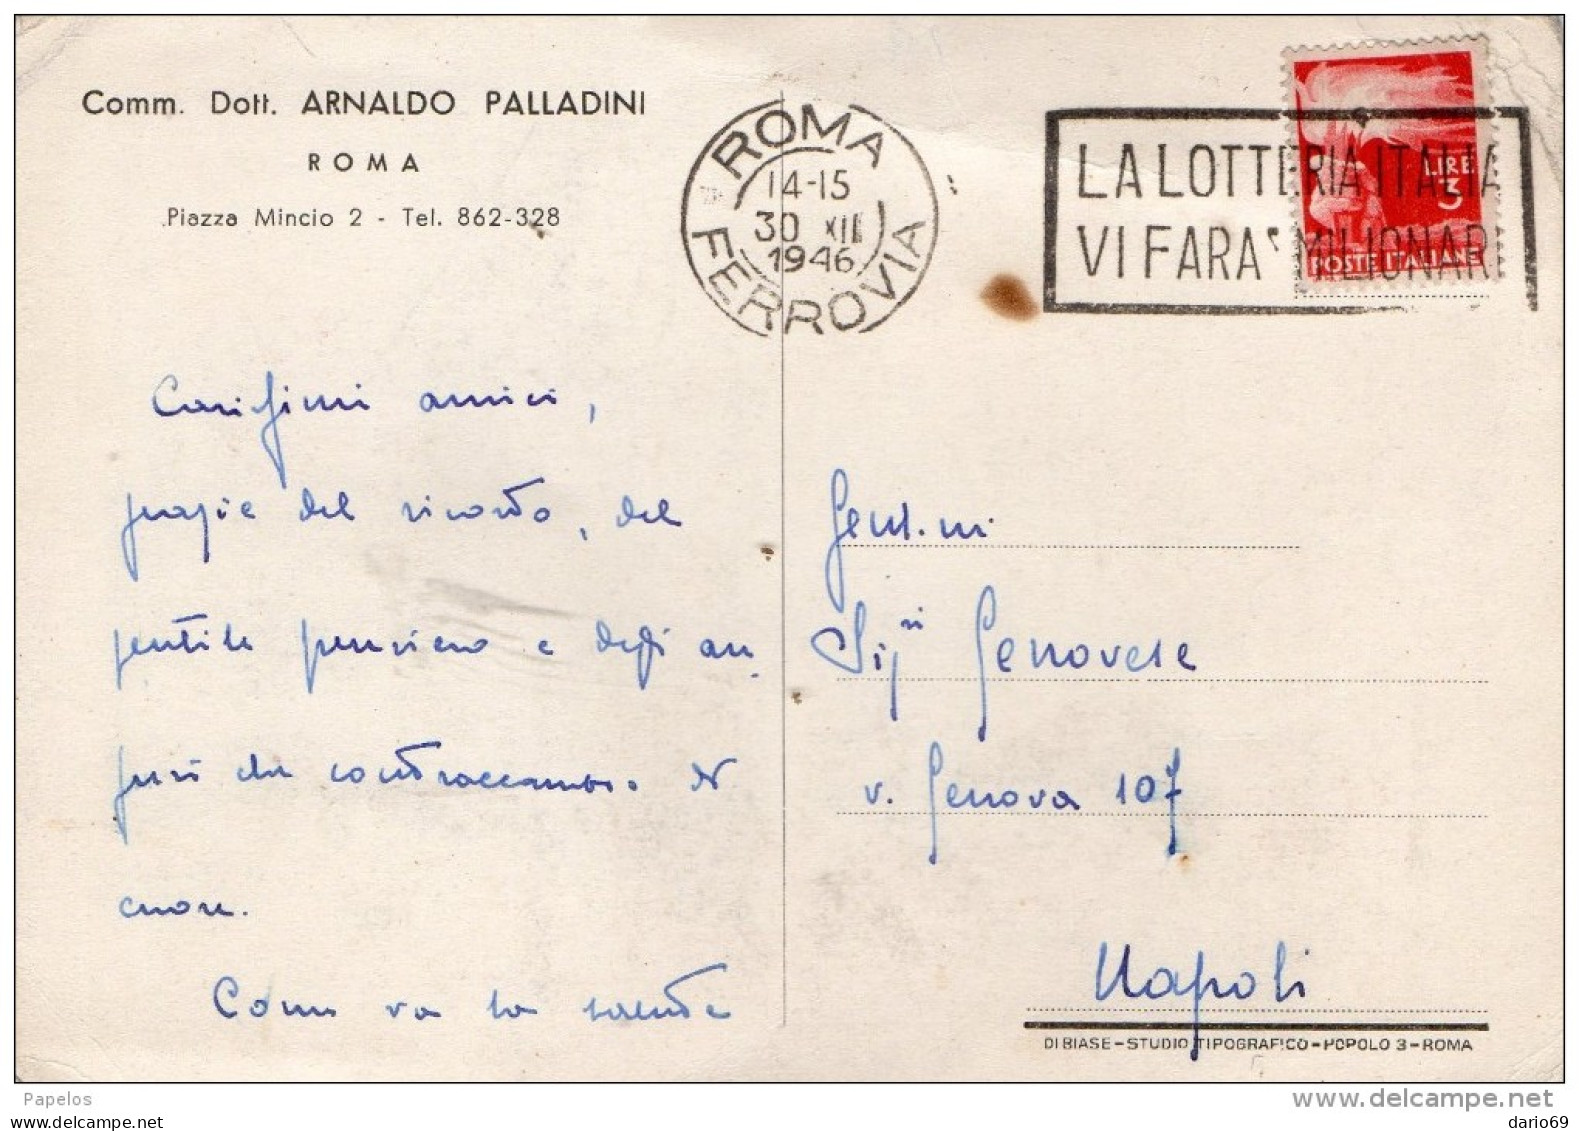 Comm. Dott. ARNALDO PALLADINI
ROMA
Piazza Mincio 2 - Tel. 862-328
ROMA
14-15
30 XII
1946
FERROVIA
LA LOTTERIA ITALIA
VI FARA' MILIONARI
LIRE
3
POSTE ITALIANE
Carissimi amici,
grazie del ricordo, del
gentile pensiero e degli au
guri che contraccambio di
cuore.
Come va la salute
Gent.mi
Sig.ri Genovese
v. Genova 107
Napoli
DI BIASE - STUDIO TIPOGRAFICO - POPOLO 3 - ROMA
Papelos
www.delcampe.net
www.delcampe.net
dario69